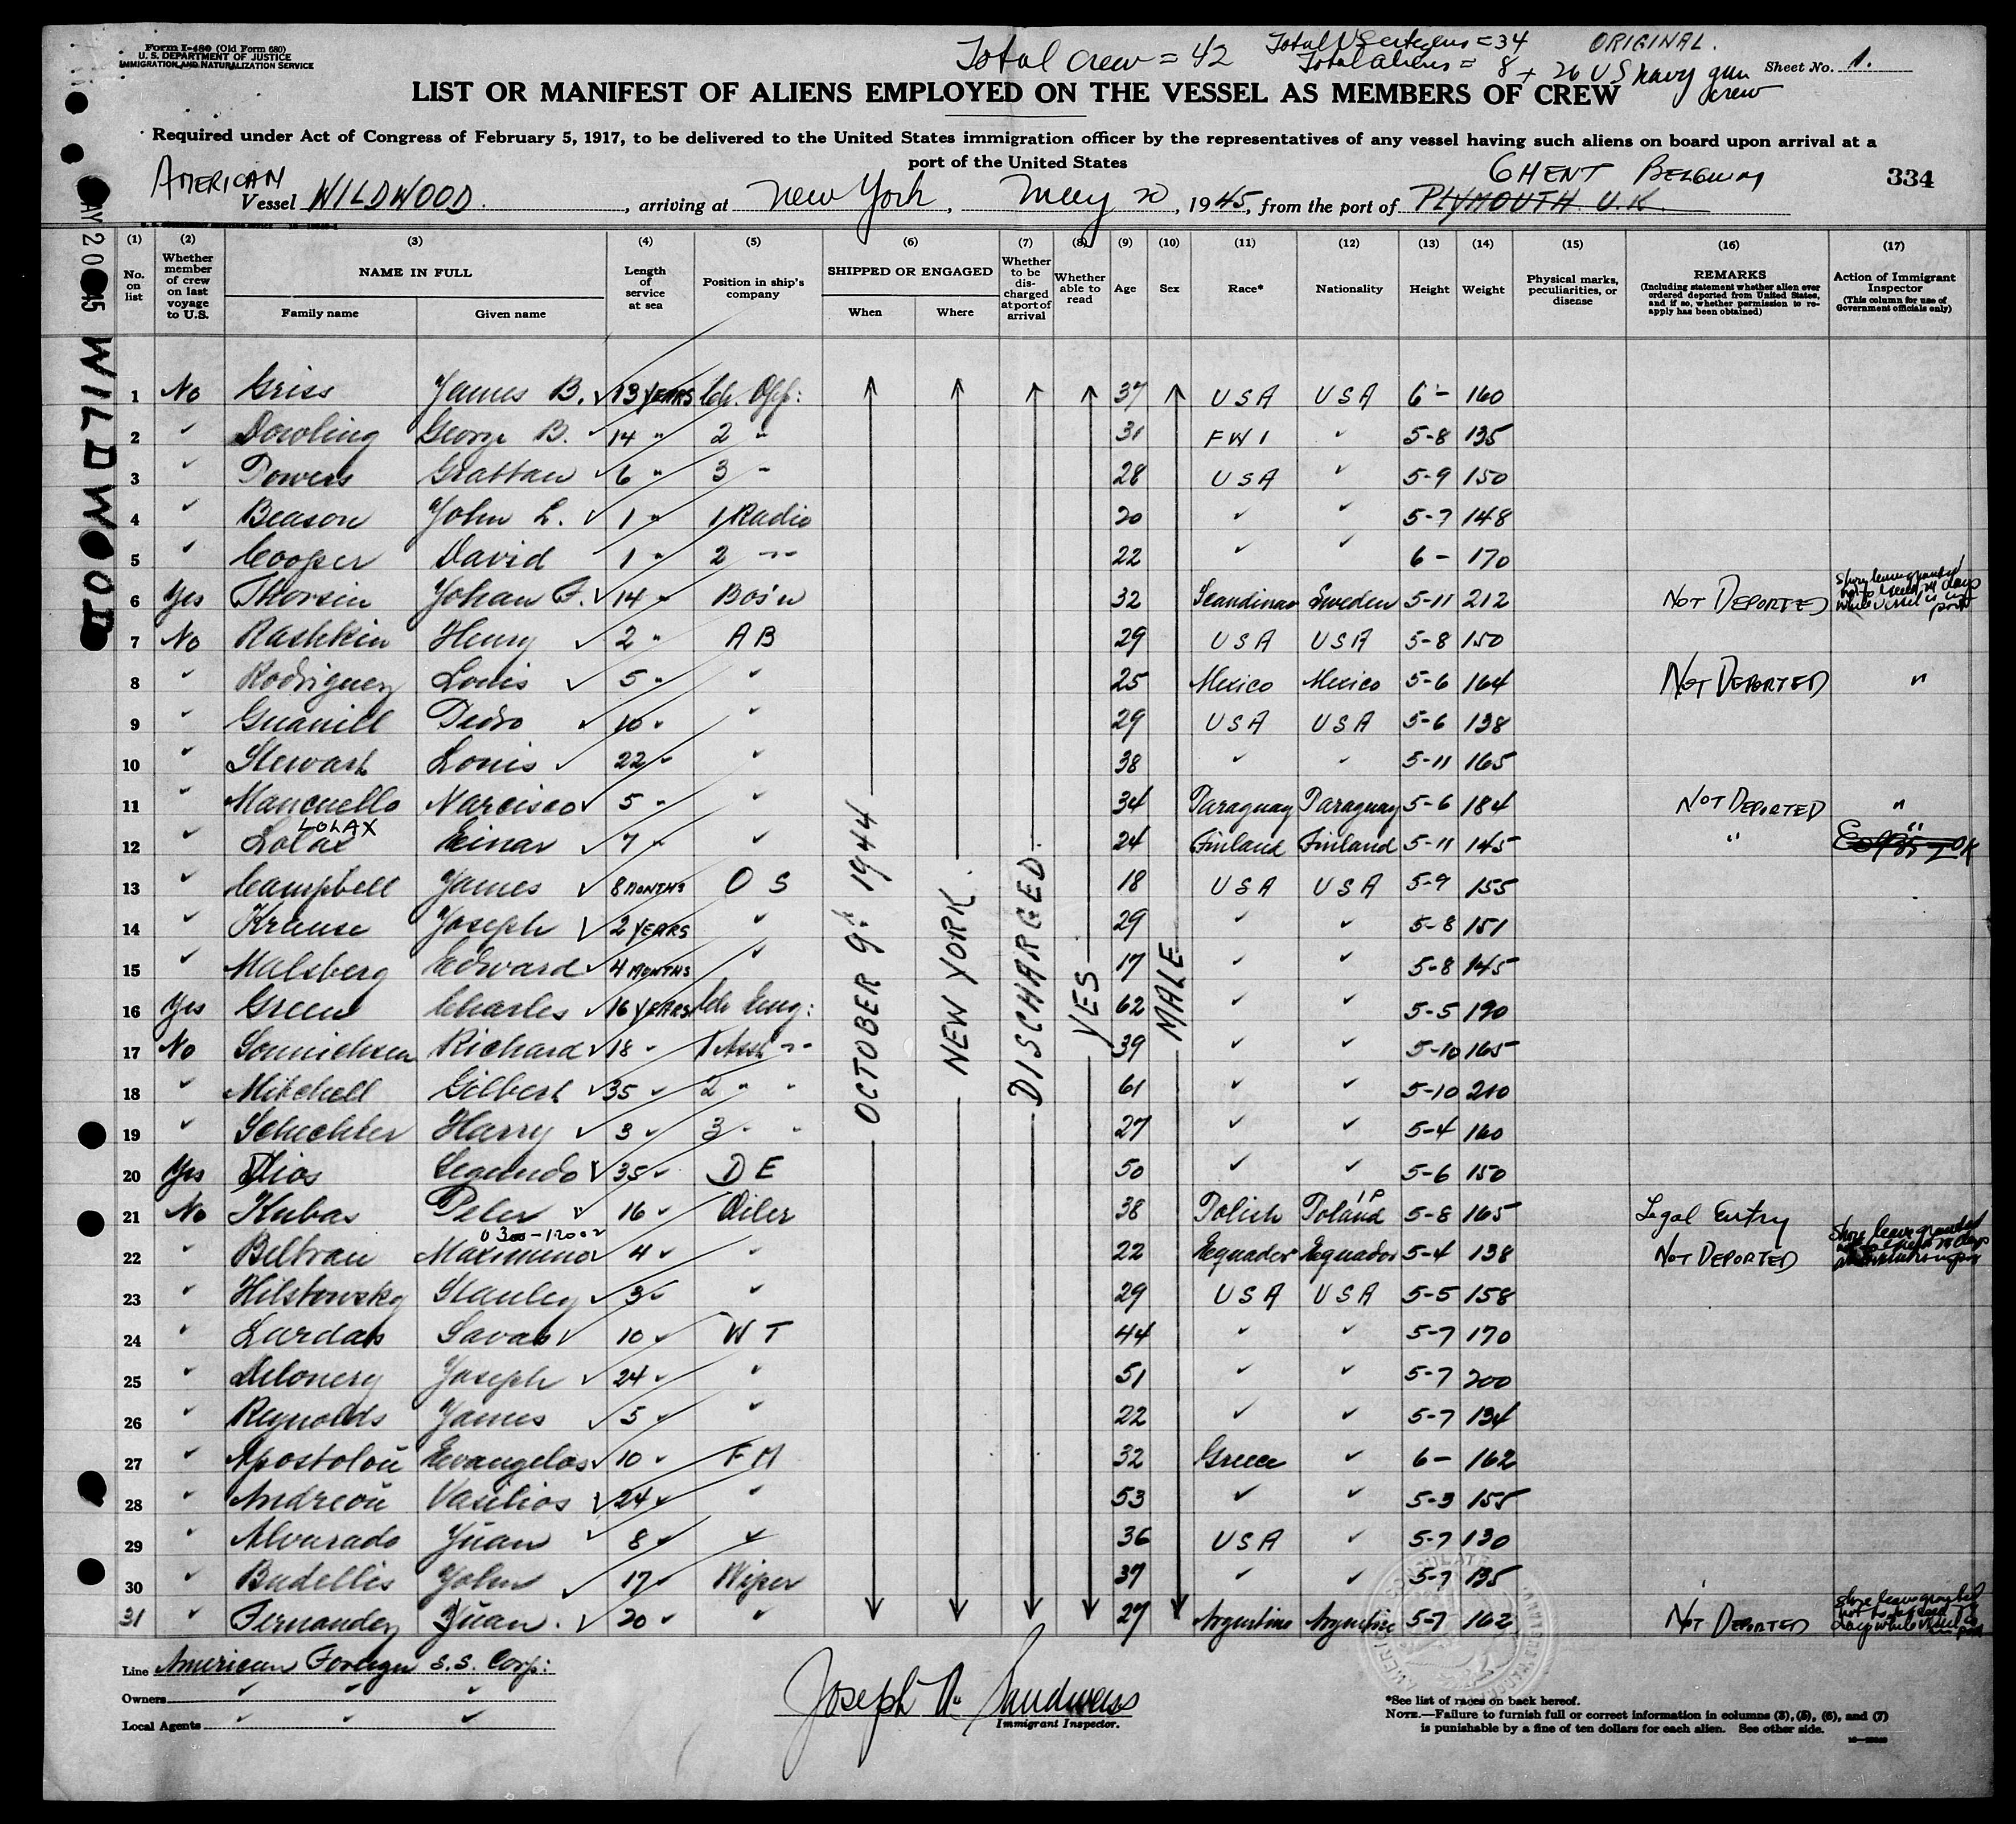 Form I-480 (Old Form 680)
U. S. DEPARTMENT OF JUSTICE
IMMIGRATION AND NATURALIZATION SERVICE
Total crew = 42
Total aliens = 8 + 26 US Navy gun crew
ORIGINAL.
Sheet No. 1.
LIST OR MANIFEST OF ALIENS EMPLOYED ON THE VESSEL AS MEMBERS OF CREW
Required under Act of Congress of February 5, 1917, to be delivered to the United States immigration officer by the representatives of any vessel having such aliens on board upon arrival at a
port of the United States
AMERICAN
GHENT BELGIUM
334
Vessel WILDWOOD., arriving at New York, May 20, 1945, from the port of PLYMOUTH U.K.
WILDWOOD
(1) (2) (3) (4) (5) (6) (7) (8) (9) (10) (11) (12) (13) (14) (15) (16) (17)
No. on list
Whether member of crew on last voyage to U.S.
NAME IN FULL
Family name
Given name
Length of service at sea
Position in ship's company
SHIPPED OR ENGAGED
When
Where
Whether to be discharged at port of arrival
Whether able to read
Age
Sex
Race*
Nationality
Height
Weight
Physical marks, peculiarities, or disease
REMARKS
(Including statement whether alien ever ordered deported from United States, and if so, whether permission to reapply has been obtained)
Action of Immigrant Inspector
(This column for use of Government officials only)
OCTOBER 9th 1944
NEW YORK.
DISCHARGED.
YES
MALE
1 No Griss James B. 13 YEARS Ch. Off: 37 USA USA 6- 160
2 " Dowling George B. 14 " 2 " 31 FWI " 5-8 135
3 " Powers Grattan 6 " 3 " 28 USA " 5-9 150
4 " Beason John L. 1 " 1 Radio 20 " " 5-7 148
5 " Cooper David 1 " 2 " 22 " " 6- 170
6 Yes Thorsin Johan F. 14 " Bos'n 32 Scandinav Sweden 5-11 212 NOT DEPORTED
7 No Rashkin Henry 2 " AB 29 USA USA 5-8 150
8 " Rodriguez Louis 5 " " 25 Mexico Mexico 5-6 164 NOT DEPORTED "
9 " Guanill Pedro 10 " " 29 USA USA 5-6 138
10 " Stewart Louis 22 " " 38 " " 5-11 165
11 " Mancuello Narcisco 5 " " 34 Paraguay Paraguay 5-6 184 NOT DEPORTED "
LOLAX
12 " Lolax Einar 7 " " 24 Finland Finland 5-11 145 " "
13 " Campbell James 8 MONTHS OS 18 USA USA 5-9 155
14 " Krause Joseph 2 YEARS " 29 " " 5-8 151
15 " Malsberg Edward 4 MONTHS " 17 " " 5-8 145
16 Yes Green Charles 16 YEARS Ch Eng: 62 " " 5-5 190
17 No Sonnichsen Richard 18 " 1 Asst " 39 " " 5-10 165
18 " Mitchell Gilbert 35 " 2 " " 61 " " 5-10 210
19 " Schechter Harry 3 " 3 " " 27 " " 5-4 160
20 Yes Dios Segundo 35 " DE 50 " " 5-6 150
21 No Kubas Peter 16 " Oiler 38 Polish Poland 5-8 165 Legal Entry
22 " Beltran Maximino 4 " " 22 Equador Equador 5-4 138 NOT DEPORTED
23 " Hilstowsky Stanley 3 " " 29 USA USA 5-5 158
24 " Lardas Savas 10 " WT 44 " " 5-7 170
25 " Delonery Joseph 24 " " 51 " " 5-7 200
26 " Reynolds James 5 " " 22 " " 5-7 134
27 " Apostolou Evangelos 10 " FM 32 Greece " 6- 162
28 " Andreou Vasilios 24 " " 53 " " 5-3 155
29 " Alvarado Juan 8 " " 36 USA " 5-7 130
30 " Budellis John 17 " Wiper 37 " " 5-7 135
31 " Fernandez Juan. 20 " " 27 Argentine Argentine 5-7 162 NOT DEPORTED
Line American Foreign S.S. Corp:
Owners " " "
Local Agents " " "
Immigrant Inspector.
*See list of races on back hereof.
NOTE.—Failure to furnish full or correct information in columns (3), (5), (6), and (7)
is punishable by a fine of ten dollars for each alien. See other side.